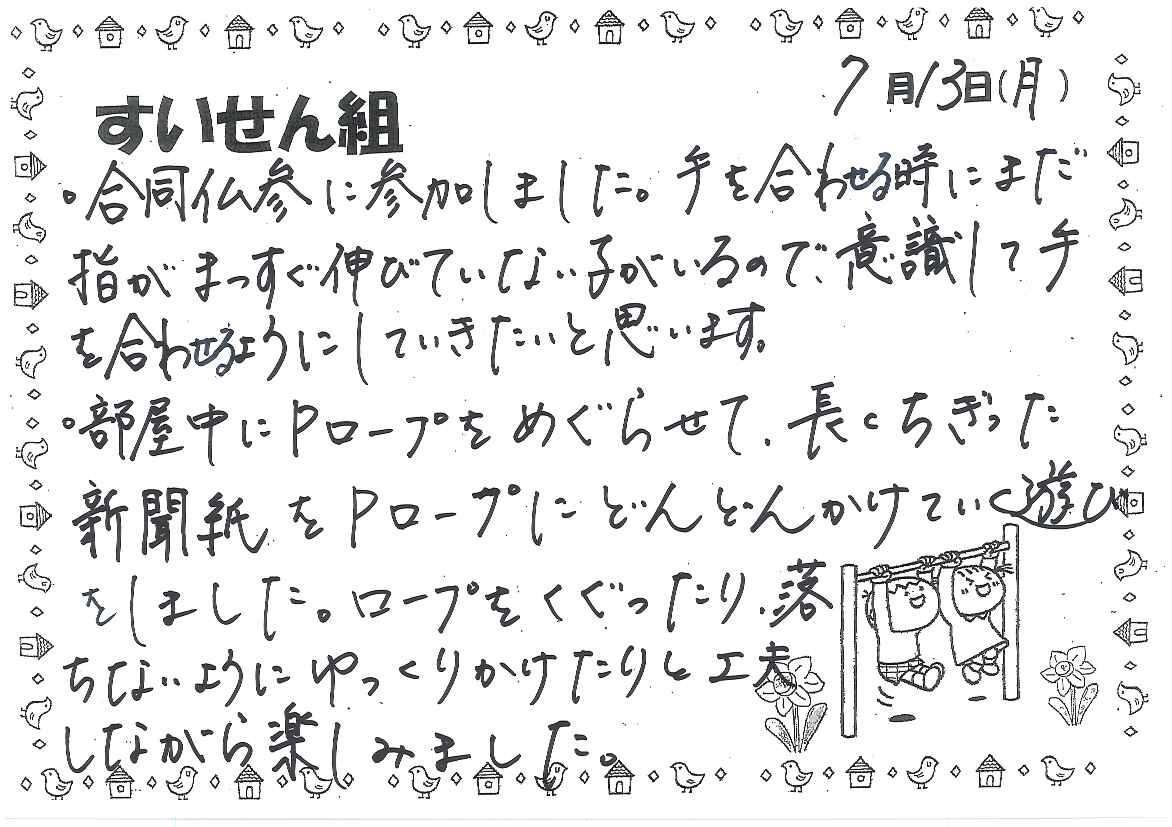 7月13日(月)
すいせん組
。合同仏参に参加しました。手を合わせる時にまだ
指がまっすぐ伸びていない子がいるので、意識して手
を合わせるようにしていきたいと思います。
。部屋中にPロープをめぐらせて、長くちぎった
新聞紙をPロープにどんどんかけていく遊び
をしました。ロープをくぐったり、落
ちないようにゆっくりかけたりと工夫
しながら楽しみました。